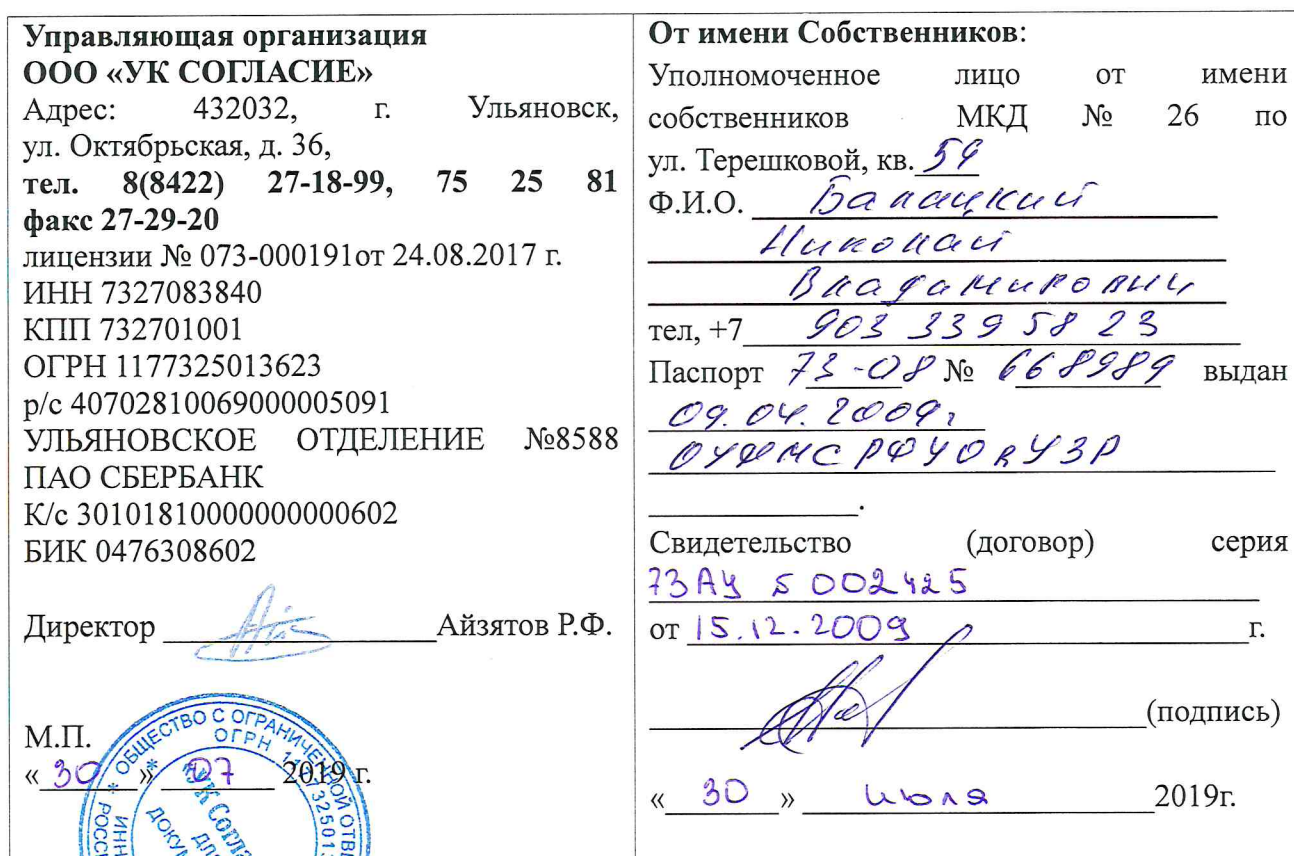 Управляющая организация
ООО «УК СОГЛАСИЕ»
Адрес: 432032, г. Ульяновск,
ул. Октябрьская, д. 36,
тел. 8(8422) 27-18-99, 75 25 81
факс 27-29-20
лицензии № 073-000191от 24.08.2017 г.
ИНН 7327083840
КПП 732701001
ОГРН 1177325013623
р/с 40702810069000005091
УЛЬЯНОВСКОЕ ОТДЕЛЕНИЕ №8588
ПАО СБЕРБАНК
К/с 30101810000000000602
БИК 0476308602
Директор Айзятов Р.Ф.
М.П.
« 30 » 07 2019 г.
ОБЩЕСТВО С ОГРАНИЧЕННОЙ
ОГРН
"УК
От имени Собственников:
Уполномоченное лицо от имени
собственников МКД № 26 по
ул. Терешковой, кв. 59
Ф.И.О.
Николай
Владимирович
тел, +7 903 339 58 23
Паспорт 73-08 № 668989 выдан
09.04.2009г
ОУФМС РФ УО в УЗР
.
Свидетельство (договор) серия
73АУ 5002425
от 15.12.2009 г.
(подпись)
« 30 » июля 2019г.